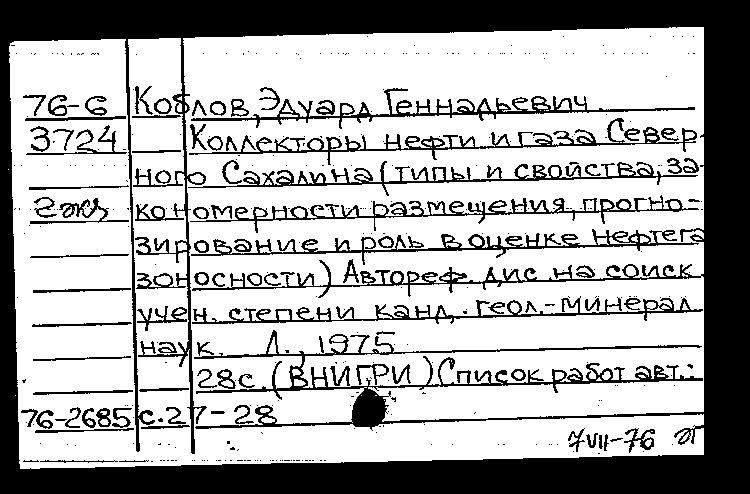 76-6 Коблов, Эдуард Геннадьевич.
3724 Коллекторы нефти и газа Север-
ного Сахалина (типы и свойства, за-
кономерности размещения, прогно-
зирование и роль в оценке нефтега
зоносности) Автореф. дис. на соиск.
учен. степени канд. геол.-минерал.
наук. Л., 1975
28с. (ВНИГРИ) Список работ авт.:
76-2685 с.27-28
7VII-76